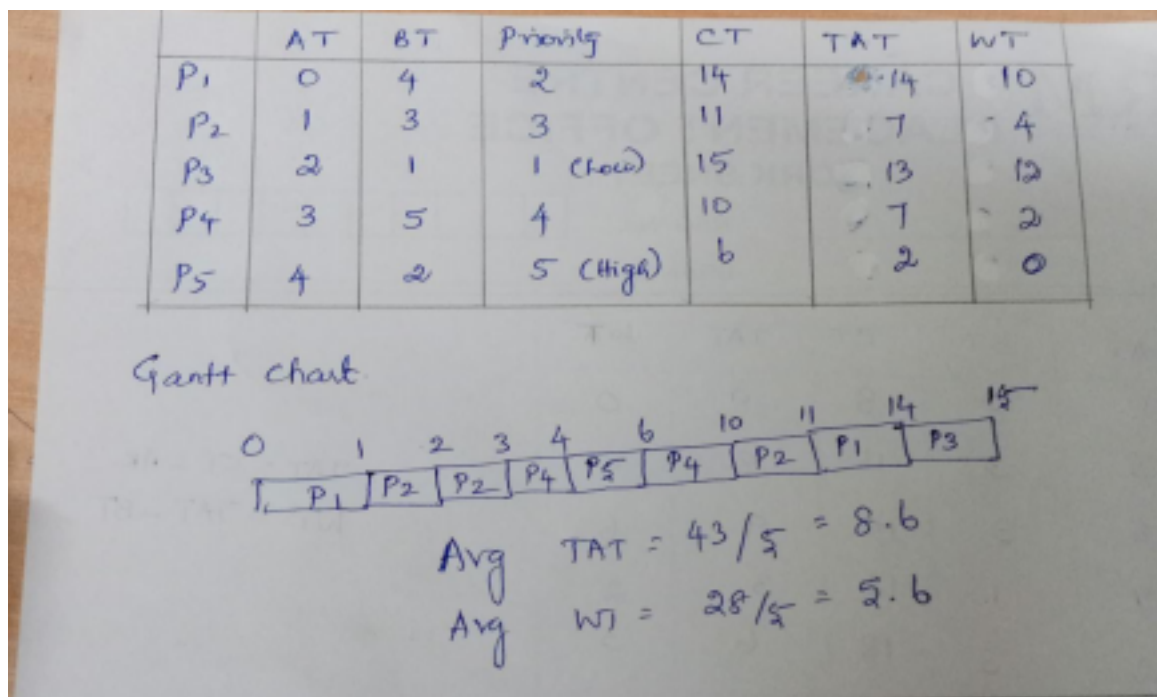 AT BT Priority CT TAT WT
P1 0 4 2 14 14 10
P2 1 3 3 11 7 4
P3 2 1 1 (Low) 15 13 12
P4 3 5 4 10 7 2
P5 4 2 5 (High) 6 2 0
Gantt chart
0 1 2 3 4 6 10 11 14 15
P1 P2 P2 P4 P5 P4 P2 P1 P3
Avg TAT = 43/5 = 8.6
Avg WT = 28/5 = 5.6